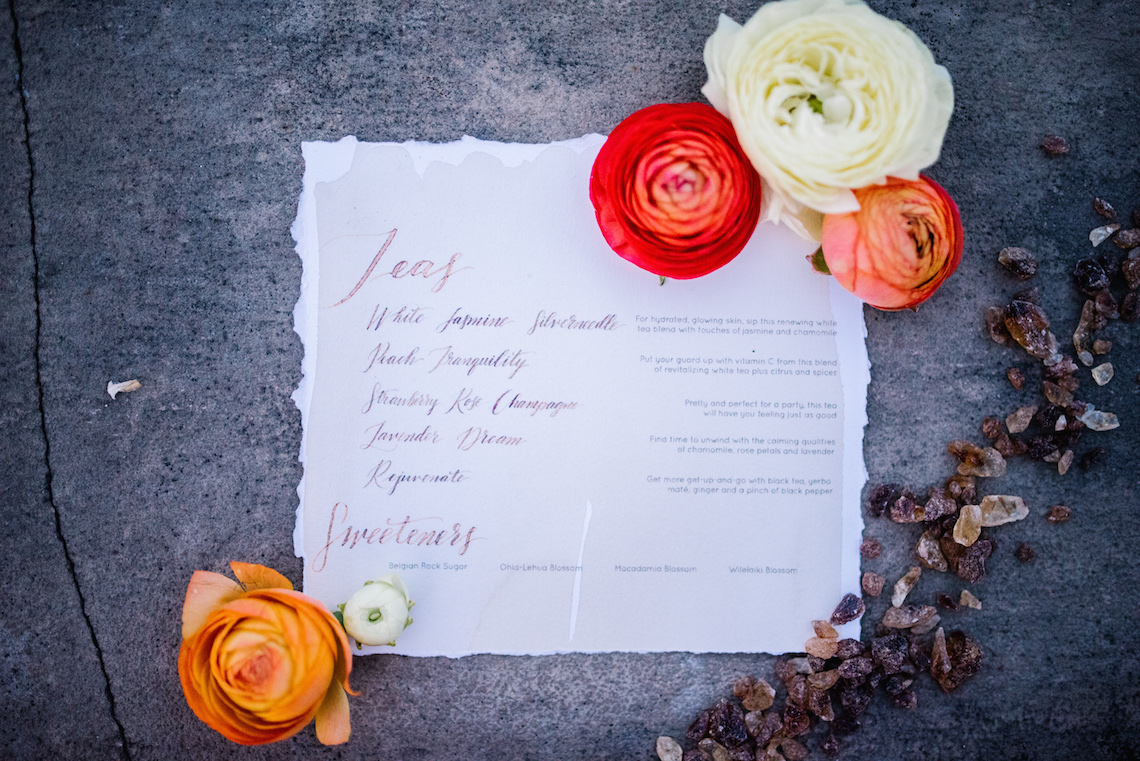 Teas
White Jasmine Silverneedle
For hydrated, glowing skin, sip this renewing white
tea blend with touches of jasmine and chamomile
Peach Tranquility
Put your guard up with vitamin C from this blend
of revitalizing white tea plus citrus and spices
Strawberry Rose Champagne
Pretty and perfect for a party, this tea
will have you feeling just as good
Lavender Dream
Find time to unwind with the calming qualities
of chamomile, rose petals and lavender
Rejuvenate
Get more get-up-and-go with black tea, yerba
maté, ginger and a pinch of black pepper
Sweeteners
Belgian Rock Sugar Ohia-Lehua Blossom Macadamia Blossom Wilelaiki Blossom